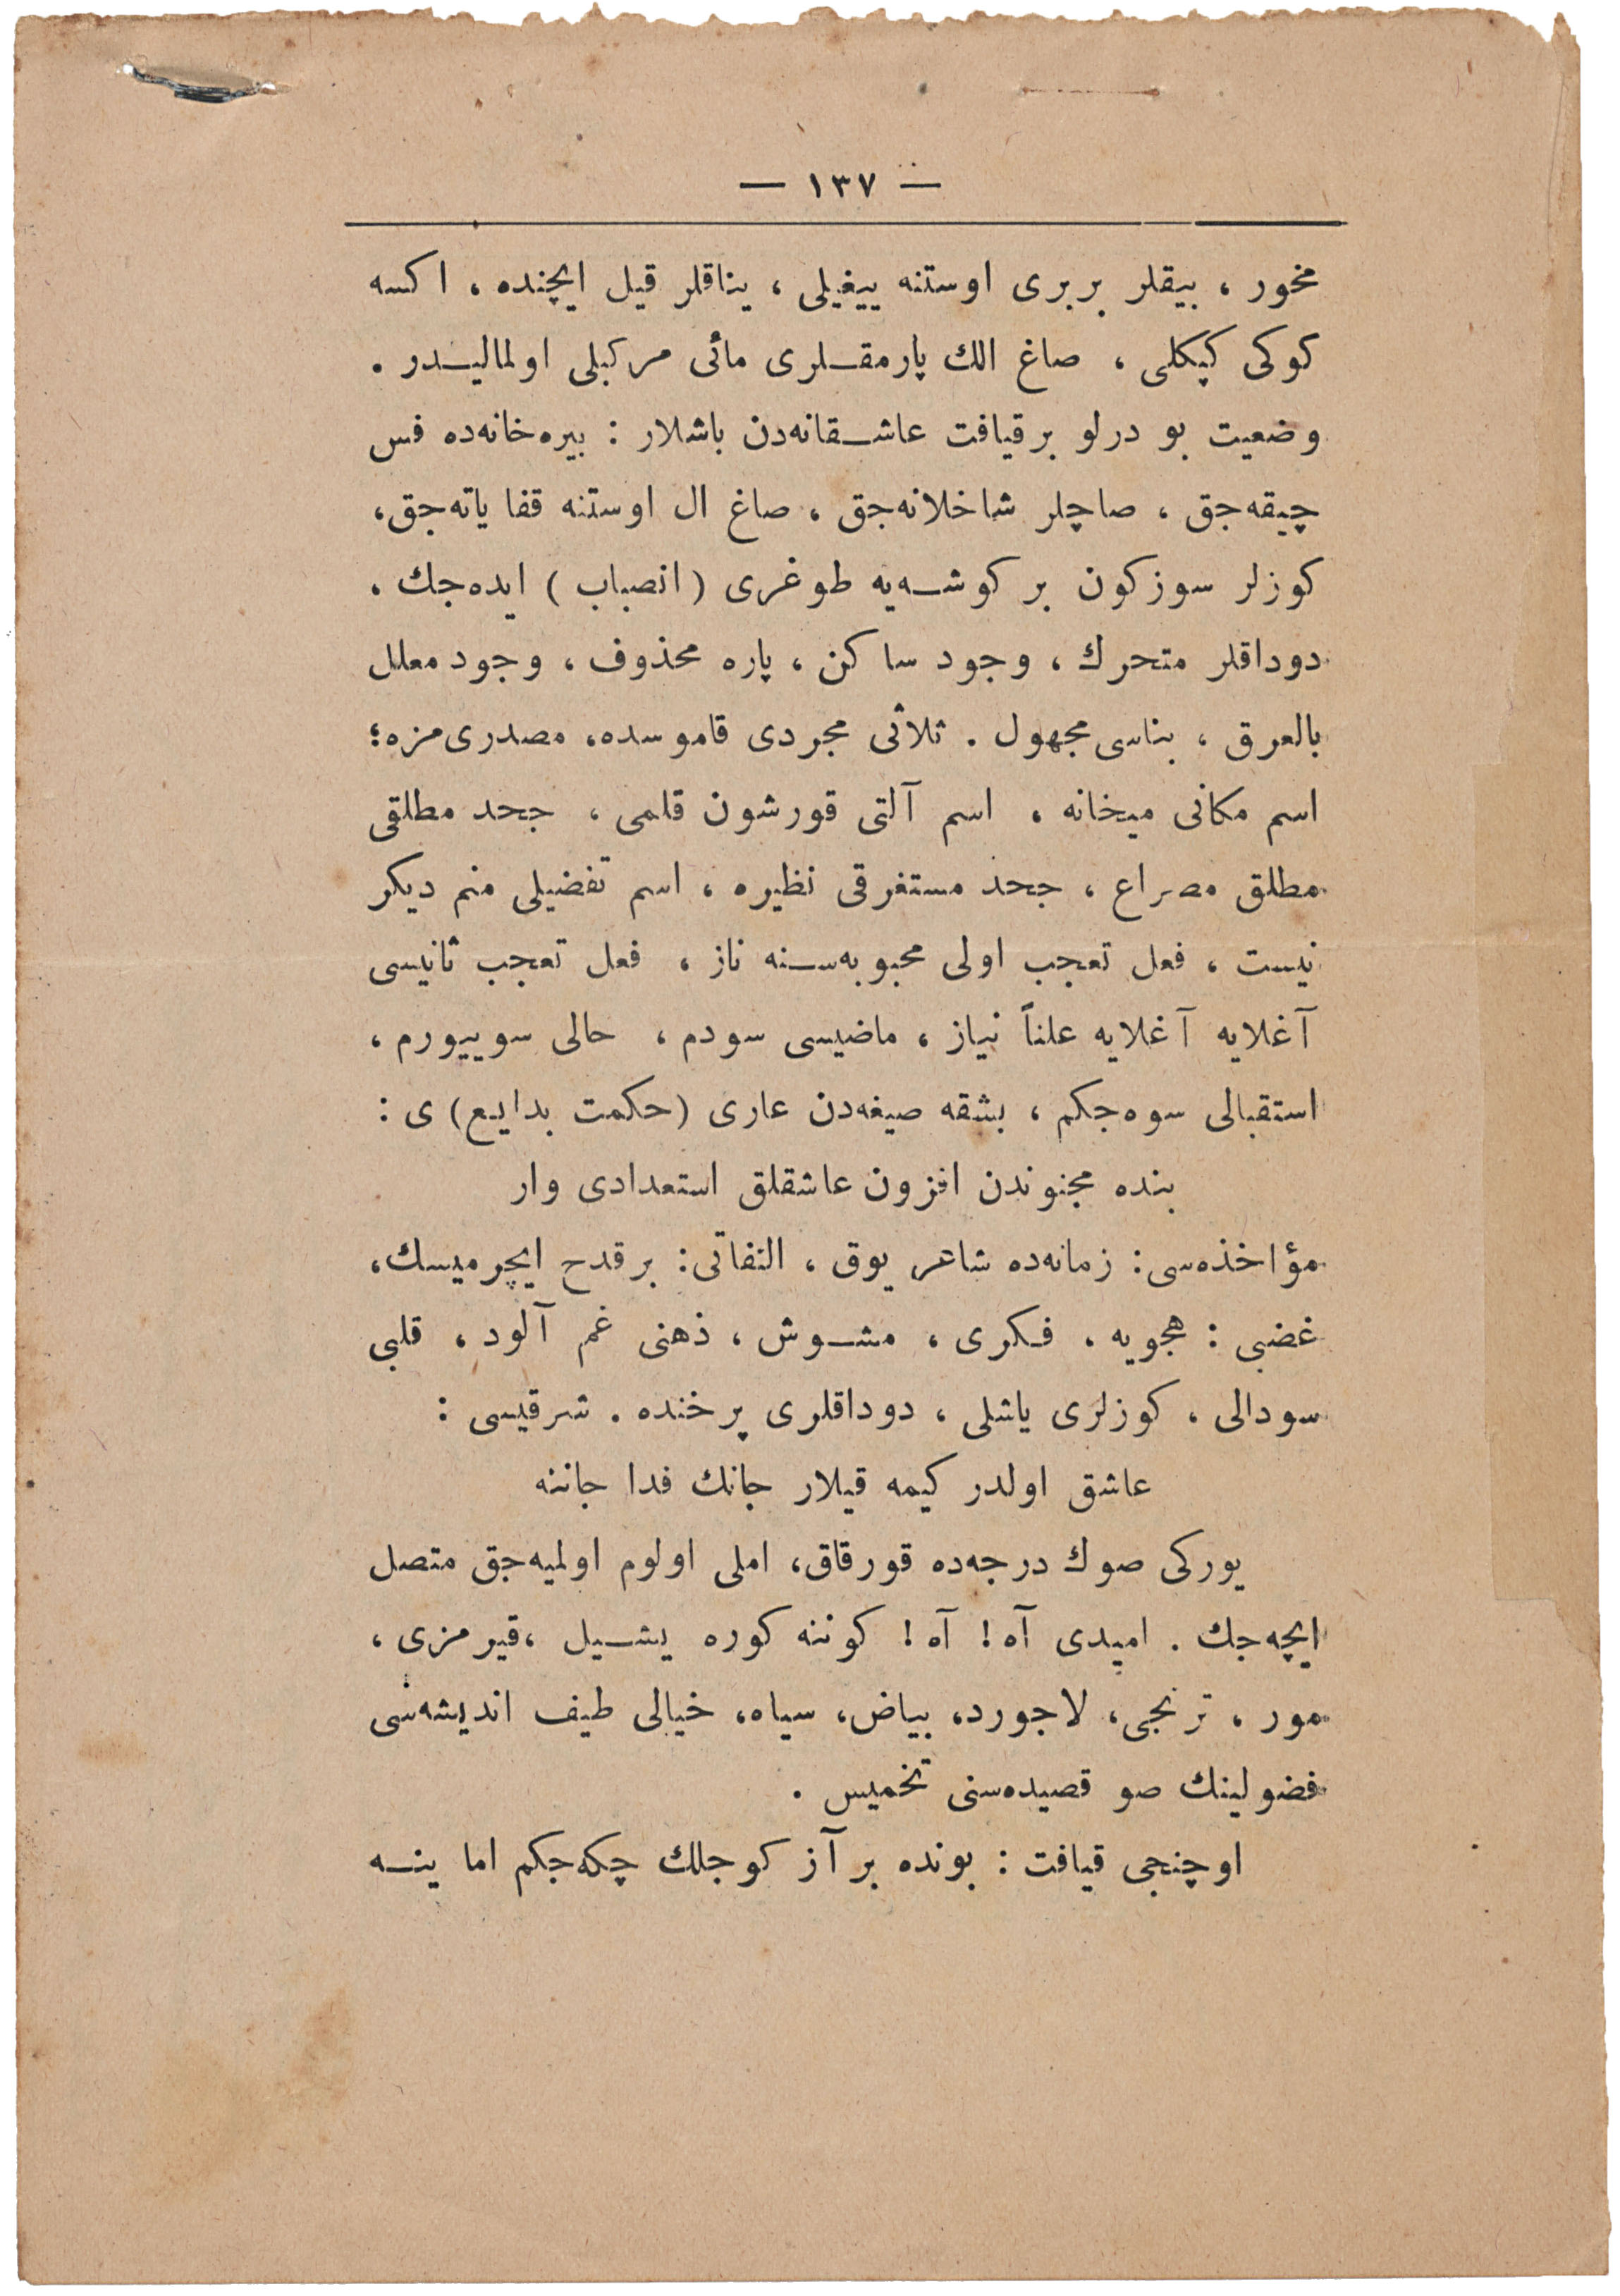 — ١٣٧ —
مخمور ، بیقلر بربری اوستنه ییغیلی ، یناقلر قیل ایچنده ، اکسه
کوکی کپکلی ، صاغ الك پارمقلری مائی مرکبلی اولمالیدر .
وضعیت بو درلو بر قیافت عاشقانه‌دن باشلار : بیره‌خانه‌ده فس
چیقه‌جق ، صاچلر شاخلانه‌جق ، صاغ ال اوستنه قفا یاته‌جق،
کوزلر سوزکون بر کوشه‌یه طوغری ( انصباب ) ایده‌جك ،
دوداقلر متحرك ، وجود ساکن ، پاره محذوف ، وجود معلل
بالعرق ، بناسی مجهول . ثلاثی مجردی قاموسده، مصدری مزه؛
اسم مکانی میخانه ، اسم آلتی قورشون قلمی ، جحد مطلقی
مطلق مصراع ، جحد مستغرقی نظیره ، اسم تفضیلی منم دیکر
نیست ، فعل تعجب اولی محبوبه‌سنه ناز ، فعل تعجب ثانیسی
آغلایه آغلایه علناً نیاز ، ماضیسی سودم ، حالی سوییورم ،
استقبالی سوه‌جکم ، بشقه صیغه‌دن عاری (حکمت بدایع) ی :
بنده مجنوندن افزون عاشقلق استعدادی وار
مؤاخذه‌سی : زمانه‌ده شاعر یوق ، التفاتی : بر قدح ایچرمیسك،
غضبی : هجویه ، فکری ، مشوش ، ذهنی غم آلود ، قلبی
سودالی ، کوزلری یاشلی ، دوداقلری پرخنده . شرقیسی :
عاشق اولدر کیمه قیلار جانك فدا جاننه
یورکی صوك درجه‌ده قورقاق، املی اولوم اولمیه‌جق متصل
ایچه‌جك . امیدی آه ! آه ! کوننه کوره یشیل ،قیرمزی ،
مور ، ترنجی، لاجورد، بیاض، سیاه، خیالی طیف اندیشه‌سی
فضولینك صو قصیده‌سنی تخمیس .
اوچنجی قیافت : بونده بر آز کوجلك چکه‌جکم اما ینه